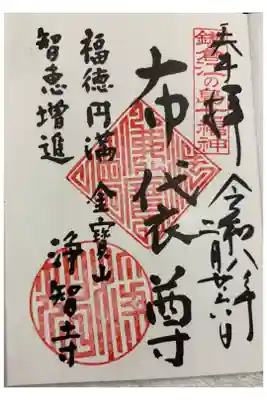 奉拝
令和八年
二月廿六日
鎌倉江の島七福神
布袋尊
金寶山
浄智寺
福徳円満
智恵増進